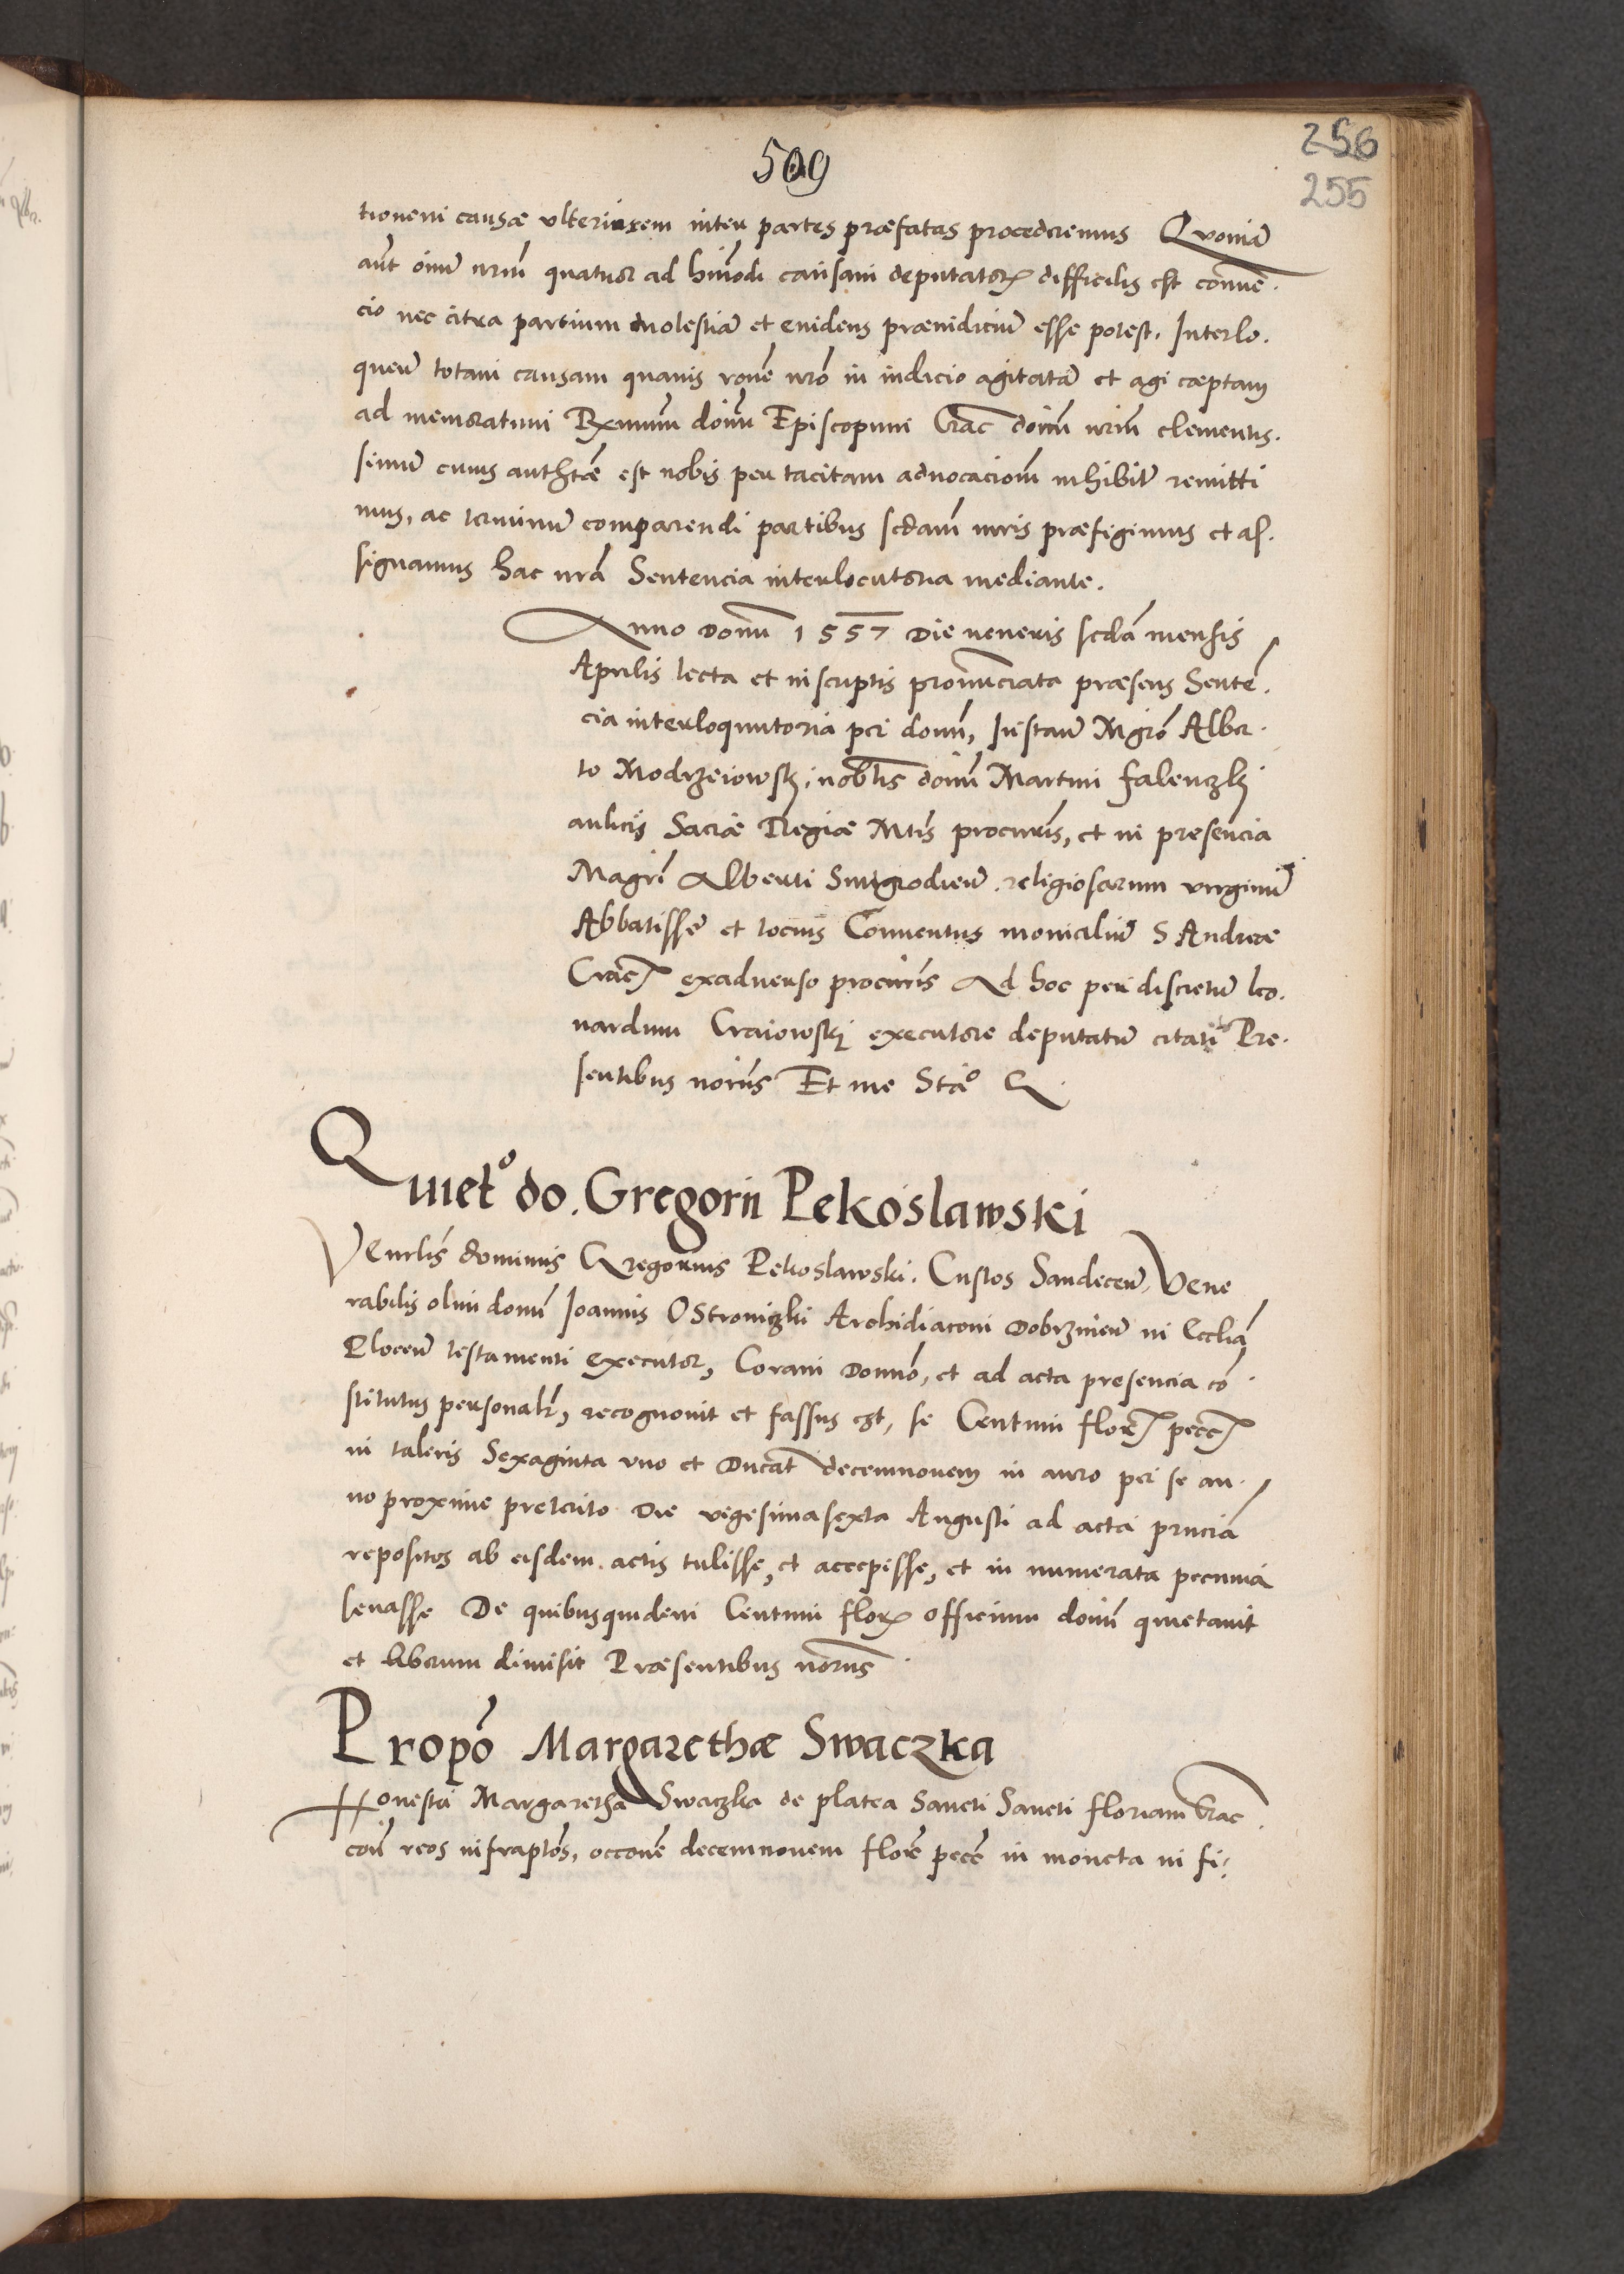 256
509
255
tionem causæ vlteriorem inter partes præfatas procederemus Quoniã
aũt oĩum nr̃um quatuor ad hmõdi causam deputatorꝝ difficilis est conuẽ.
cio nec citra partium molestiã et euidens præiudiciũ esse potest. Interlo.
quẽn totam causam quauis rõne nr̃o in iudicio agitatã et agi cæptam
ad memoratum Rx̃mum dõnum Episcopum Crac̃ dõnum nr̃um clementis.
simũ cuius authtãe est nobis per tacitam aduocaciõem inhibitũ remitti
mus, ac terminũ comparendi partibus scđam iuris præfigimus et as.
signamus hac nr̃a Sentencia interlocutoria mediante.
Anno Domĩ 1557 Die veneris scđa mensis
Aprilis lecta et in scriptis pronũnciata præsens Sentẽ.
cia interloquutoria per domĩ, Iñstan̄ Mgrõ Alber.
to Modrzeiowskj, nobĩlis domĩ Martini Falenczkj
aulicis Sacræ Regiæ Mtis procuris, et in presẽncia
Magr̃i Alberti Sintgrodien̄. religiosarum virginũ
Abbatissẽ et tocius Conuentus monialiũ S Andreæ
Crac̃ exaduerso procuris Ad hoc per discretũ Leo.
nardum Craiowskj executorẽ deputatũ citati Pre.
sentibus notrĩis Et me Stão
Quiet.º do. Gregorii Pekoslawski
Venrlis dominus Gregorius Pekoslawski. Custos Sandecen̄, Vene
rabilis olim domĩ Joannis Ostrowiczki Archidiaconi Dobrzinen̄ in Eccliã
Plocen̄ testamenti executor, Coram Domĩno, et ad acta presencia cõ.
stitutus personalr̃, recognouit et fassus est, se Centum floren̄ pecc̃
in taleris Sexaginta vno et Ducat̃ decemnouem in auro per se an.
no proxime preterito Die vigesimasexta Augusti ad acta prñcia
repositos ab eisdem. actis tulisse, et accepisse, et in numerata pecunia
leuasse De quibusquidem Centum florꝝ officium domĩ quietauit
et liberum dimisit Præsentibus notrĩis.
Propõ Margarethæ Swaczka
Honesta Margaretha Swaczka de platea Sancti Sancti Floriani Crac
con̄ reos infrapt̃os, occõne decemnouem florẽ pecc̃ in moneta in fi: